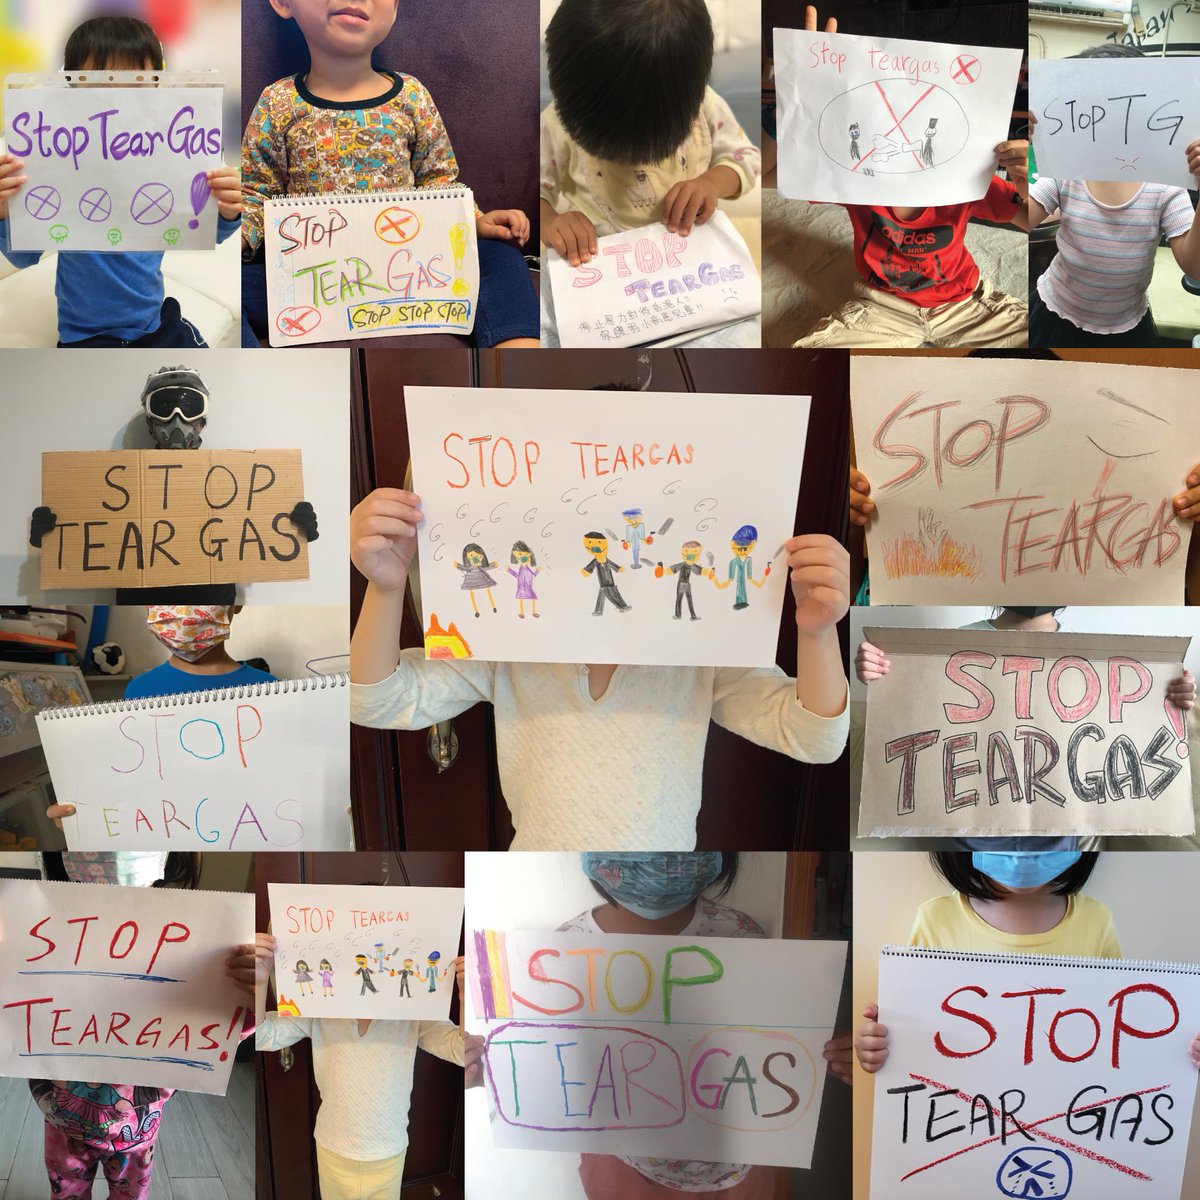 Stop Tear Gas
!
STOP
TEAR GAS!
STOP STOP STOP
STOP
TEARGAS
停止暴力對待香港人!!
兒童!!
Stop teargas
adidas
Japan
STOP TG
STOP
TEAR GAS
STOP TEARGAS
STOP
TEARGAS
STOP
TEARGAS
STOP
TEARGAS!
STOP
TEARGAS!
STOP TEARGAS
STOP
TEAR GAS
STOP
TEAR GAS